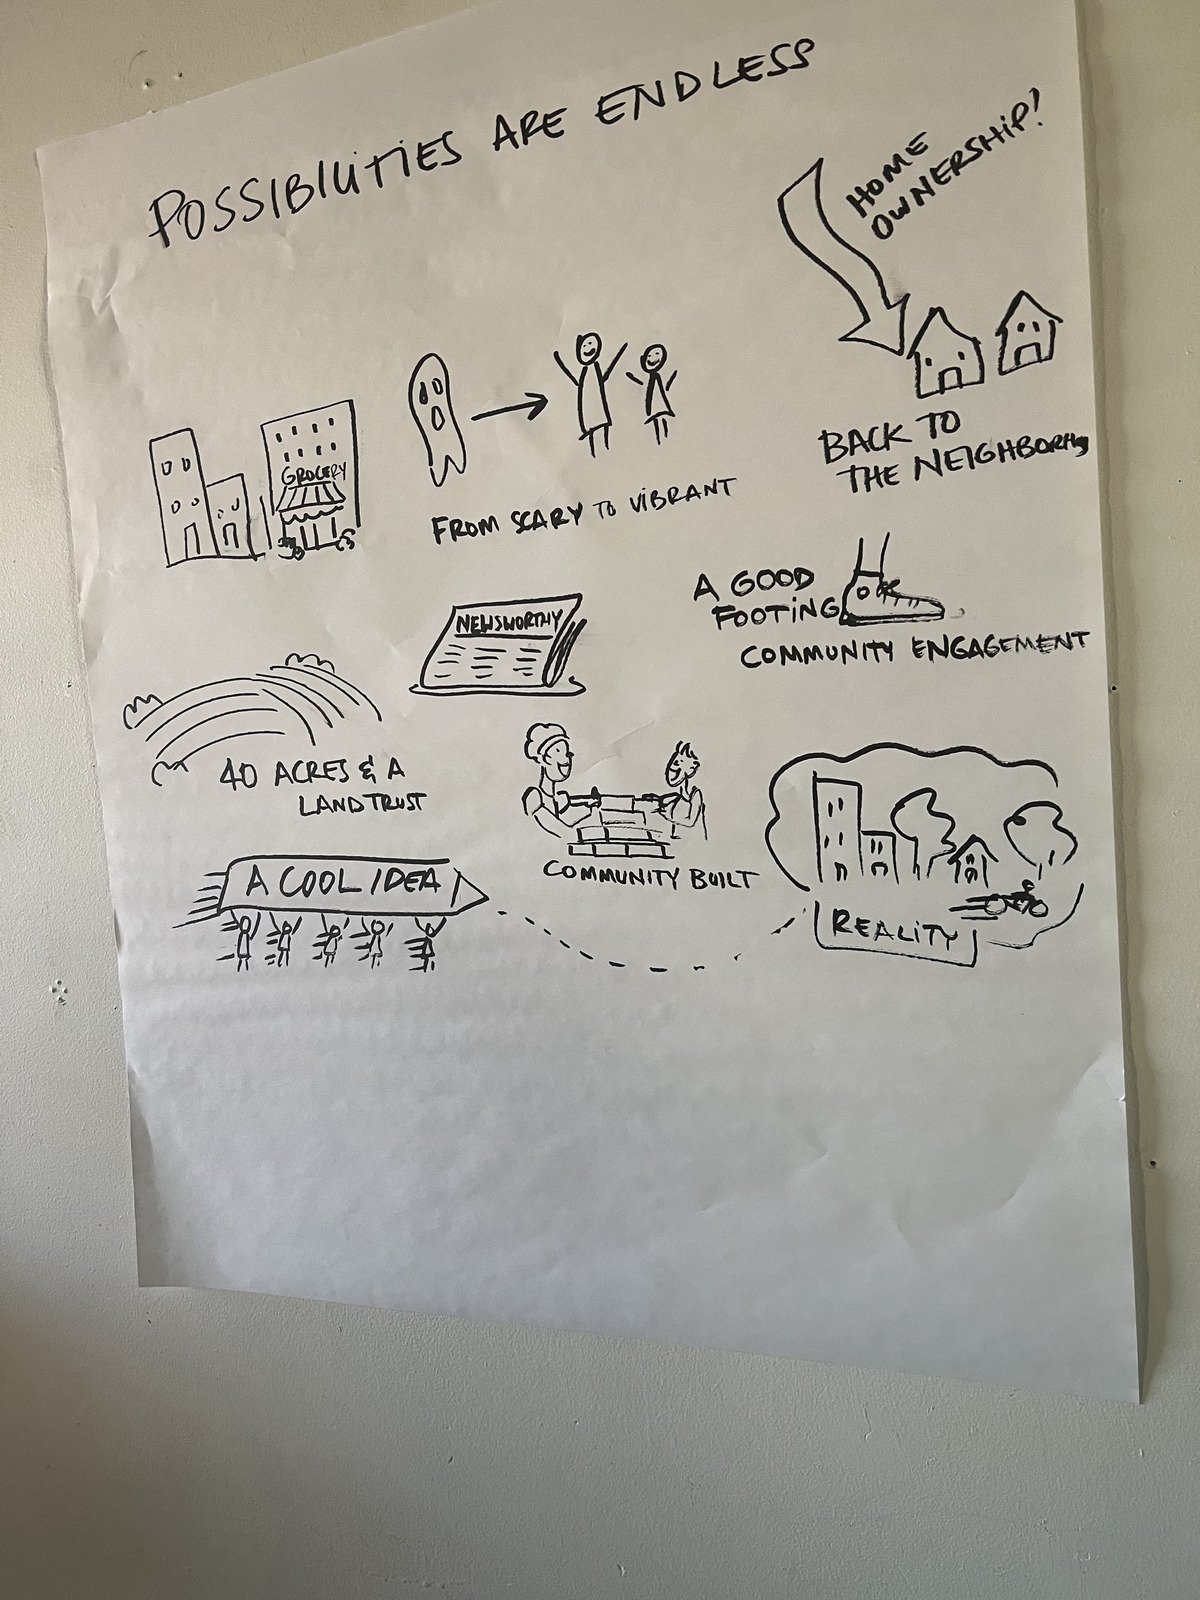 POSSIBILITIES ARE ENDLESS
HOME
OWNERSHIP!
BACK TO
THE
GROCERY
FROM SCARY TO VIBRANT
A GOOD
FOOTING
COMMUNITY ENGAGEMENT
NEWSWORTHY
40 ACRES & A
LAND TRUST
COMMUNITY BUILT
A COOL IDEA
REALITY